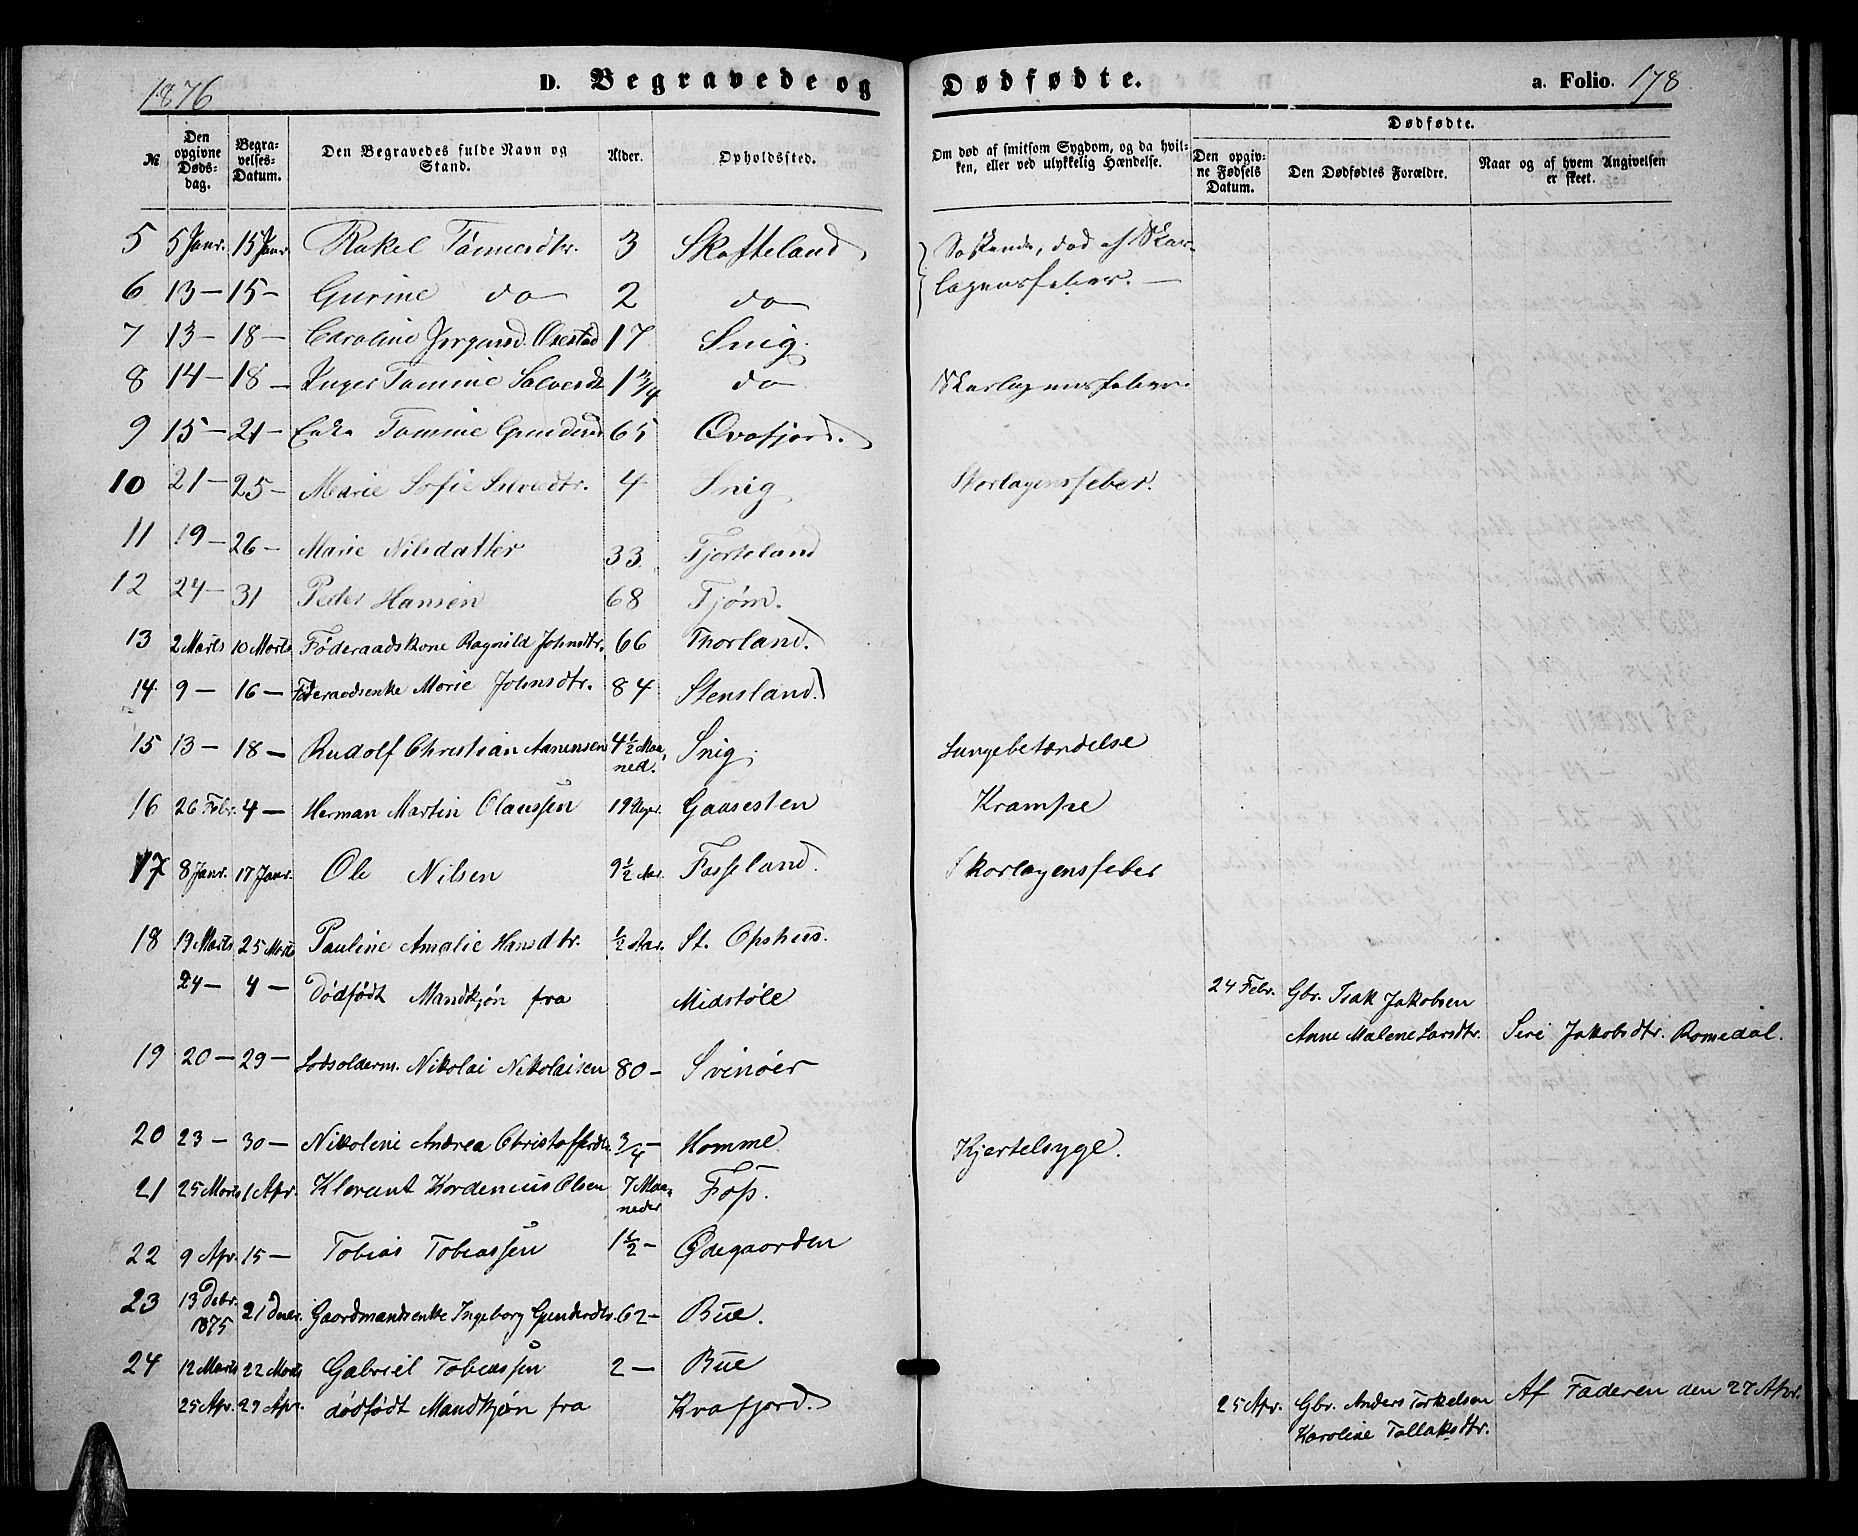 1876 D. Begravede og Dødfødte. a. Folio. 178
№ Den opgivne Døds-dag. Begra-velses-Datum. Den Begravedes fulde Navn og Stand. Alder. Opholdssted. Om død af smitsom Sygdom, og da hvil-ken, eller ved ulykkelig Hændelse. Dødfødte. Den opgiv-ne Fødsels Datum. Den Dødfødtes Forældre. Naar og af hvem Angivelsen er skeet.
5 5 Janr. 15 Janr. Rakel Tønnesdtr. 3 Skofteland } Søskende, død af Skar-
6 13 — 15 — Gurine do 2 do lagensfeber. —
7 13 — 18 — Caroline Jørgensd. Oxestad 17 Snig.
8 14 — 18 — Inger Tomine Salvesdt 1 3/4 do Skarlagensfeber
9 15 — 21 — Enke Tomine Gundersd 65 Qvafjord.
10 21 — 25 — Marie Sofie 4 Snig Skarlagensfeber.
11 19 — 26 — Marie Nilsdatter 33 Tjorteland
12 24 — 31 Peder Hansen 68 Tjøm.
13 2 Marts 10 Marts Føderaadskone Ragnild Johnsdtr. 66 Thorland.
14 9 — 16 — Føderaadsenke Marie Johnsdtr. 84 Stensland.
15 13 — 18 — Rudolf Christian Aanensen 4 1/2 Maa- Snig Lungebetændelse
ned.
16 26 Febr. 4 — Herman Martin Olaussen 19 Uger. Gaasesten Krampe
17 8 Janr. 17 Janr. Ole Nilsen 9 1/2 Aar. Fasseland. Skarlagensfeber
18 19 Marts 25 Marts Pauline Amalie Hansdtr. 1/2 Aar. St. Opshus.
24 — 4 — Dødfødt Mandkjøn fra Midstøle 24 Febr. Gbr. Isak Jakobsen
Anne Malene Larsdtr. Seri Jakobsdtr. Romedal.
19 20 — 29 — Lodsolderm. Nikolai Nikolaisen 80 — Svinøer
20 23 — 30 — Nikoleni Andrea Christoffersdtr. 3/4 — Homme Kjertelsyge.
21 25 Marts 1 Apr. Klorant Kordenius Olsen 7 Maa- Foss.
neder
22 9 Apr. 15 — Tobias Tobiassen 1 1/2 — Ødegaarden
23 13 Debr. 21 Gaardmandsenke Ingeborg Gundersdtr. 62 — Bue.
1875
24 12 Marts 22 Marts Gabriel Tobiassen 2 — Bue
25 Apr. 29 Apr. dødfødt Mandkjøn fra Kvafjord. 25 Apr. Gbr. Anders Torkelsen Af Faderen den 27 Apr.
Karoline Tollaksdtr.